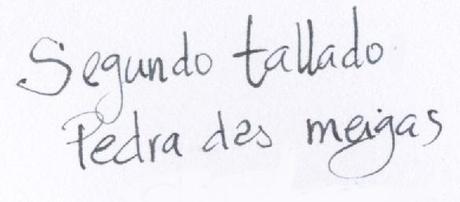 Segundo tallado
Pedra das meigas